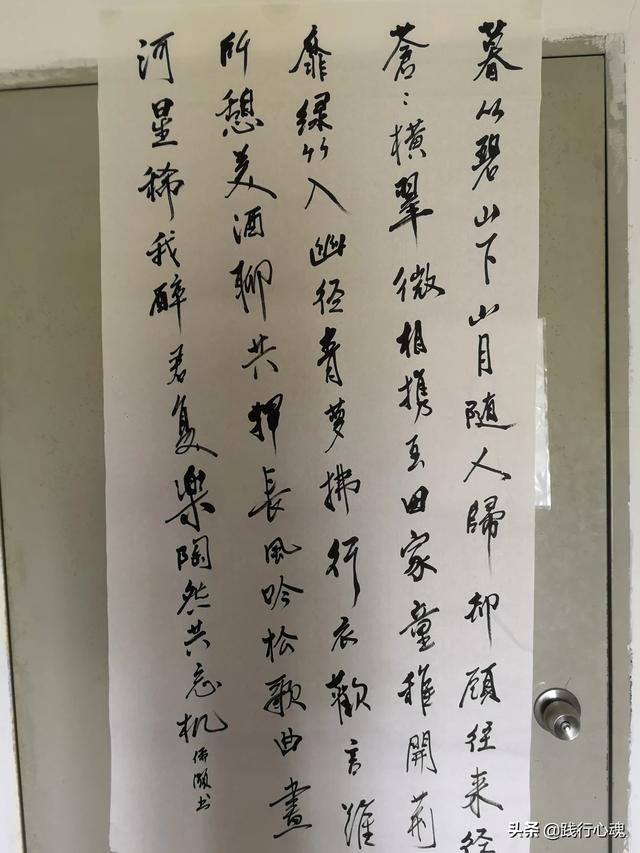 暮从碧山下山月随人歸却顾往来径
蒼〻横翠微相携至田家童稚開荆
扉绿竹入幽径青萝拂行衣歡言
所憩美酒聊共揮長風吟松歌曲盡
河星稀我醉君复樂陶然共忘机
书
头条 @践行心魂